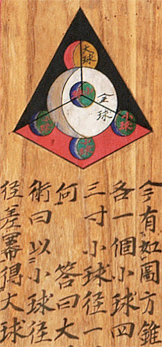 大球
全球
今有如圖方錐
各一個小球四
三寸小球径一
何 答曰大
術曰以小球径
径差冪得大球